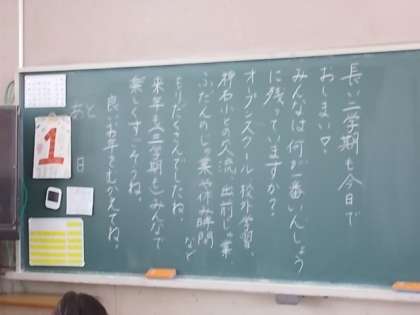 長い二学期も今日で
おしまい♡。
みんなは何が一番いんしょう
に残っていますか?
オープンスクール、校外学習、
小との交流、出前じゅ業、
ふだんのじゅ業や休み時間
など
もりだくさんでしたね。
来年も(三学期も)みんなで
楽しくすごそうね。
良いお年をむかえてね。
あと
1
日